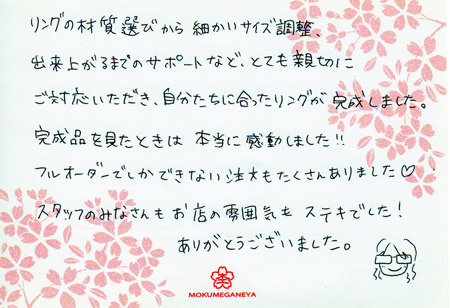 リングの材質選びから 細かいサイズ調整、
出来上がるまでのサポートなど、とても親切に
ご対応いただき、自分たちに合ったリングが 完成しました。
完成品を見たときは 本当に感動しました!!
フルオーダーでしかできない注文もたくさんありました♡
スタッフのみなさんも お店の雰囲気も ステキでした!
ありがとうございました。
MOKUMEGANEYA